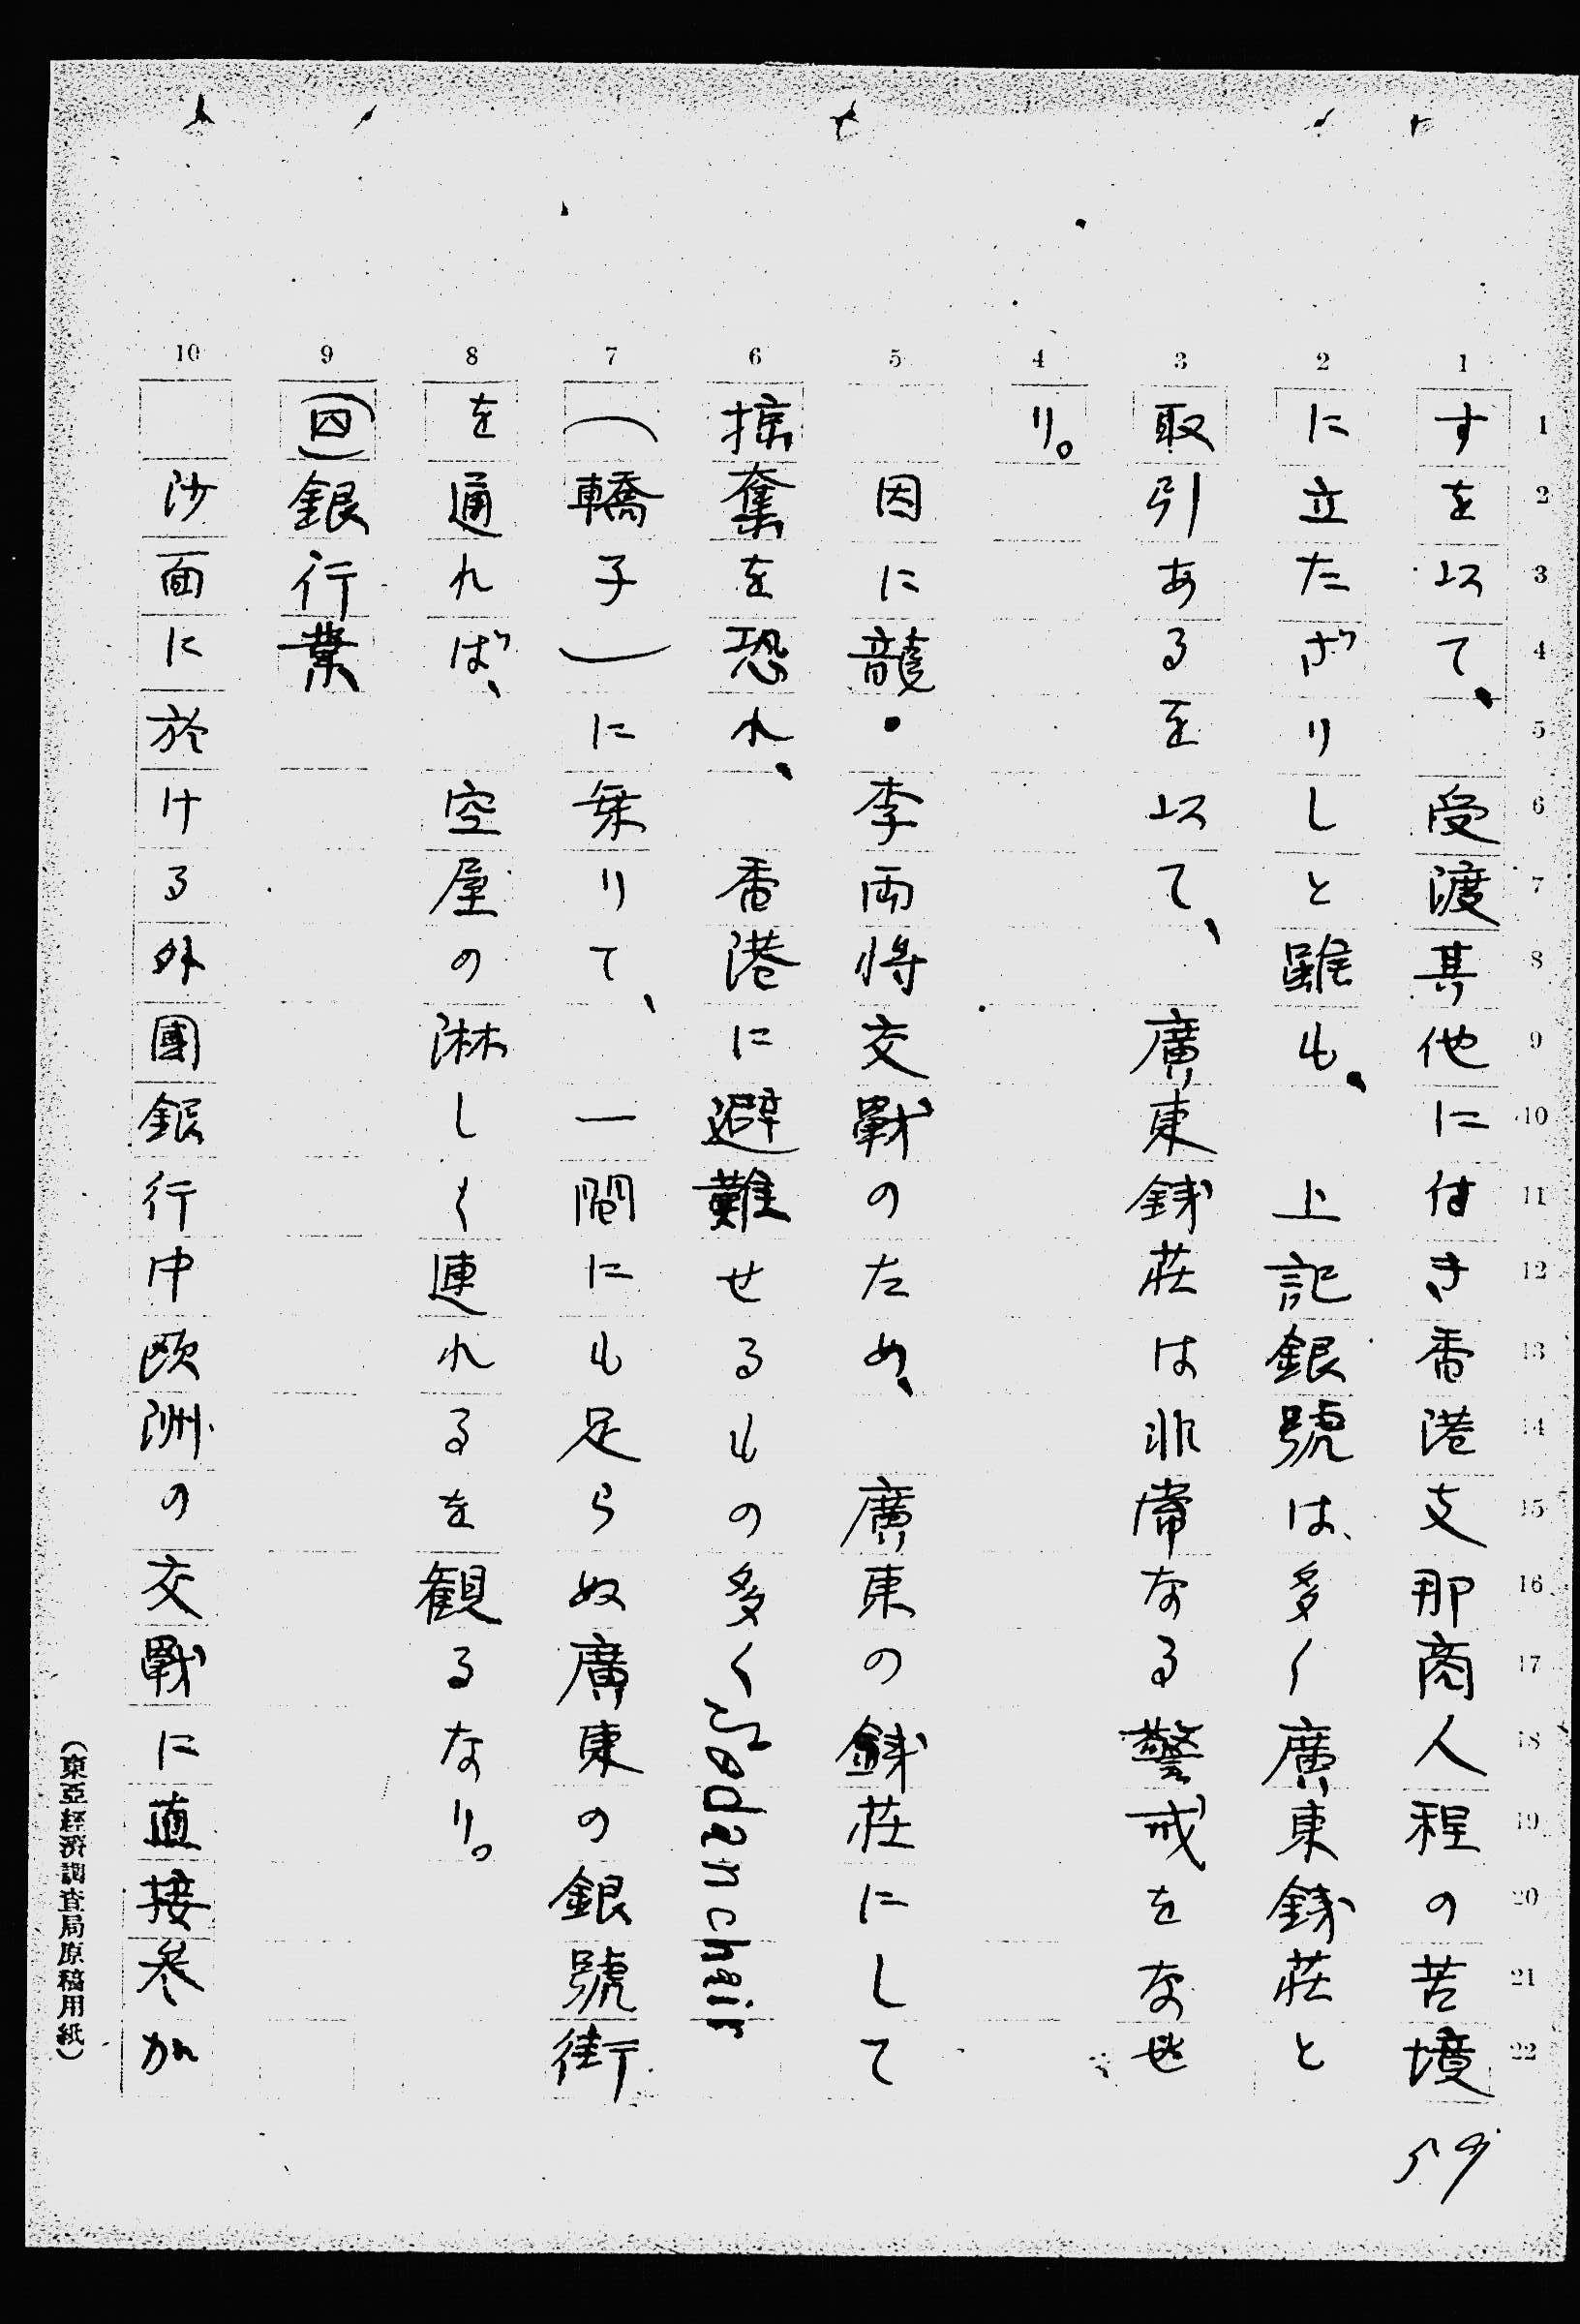 すを以て、受渡其他に付き香港支那商人程の苦境
に立たざりしと雖も、上記銀號は多く廣東錢莊と
取引あるを以て、廣東錢莊は非常なる警戒をなせ
り。
因に龍・李両将交戰のため、廣東の錢莊にして
掠奪を恐れ、香港に避難せるもの多くsedan chair
(轎子)に乗りて、一間にも足らぬ廣東の銀號街
を通れば、空屋の淋しく連れるを観るなり。
(四)銀行業
沙面に於ける外國銀行中欧洲の交戰に直接参加
59
(東亞経済調査局原稿用紙)
1 2 3 4 5 6 7 8 9 10
1 2 3 4 5 6 7 8 9 10 11 12 13 14 15 16 17 18 19 20 21 22